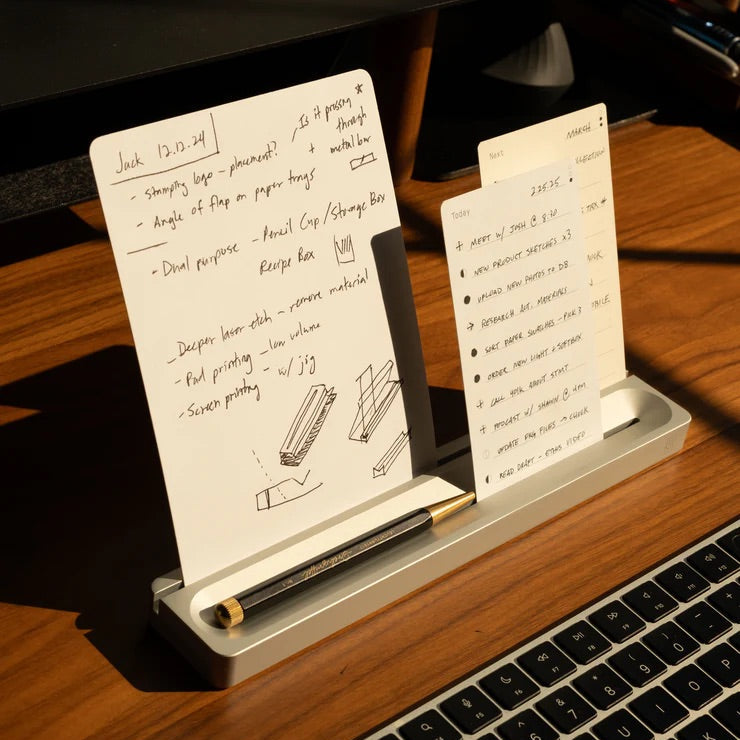 Jack 12.12.24
- Stamping logo - placement?
Is it pressing
through
metal bar
- Angle of flap on paper trays
- Dual purpose - Pencil Cup / Storage Box
Recipe Box
- Deeper laser etch - remove material
- Pad printing - low volume
- Screen printing - w/ jig
Today
2.25.25
MEET W/ JOSH @ 8:30
NEW PRODUCT SKETCHES x3
UPLOAD NEW PHOTOS TO DB
RESEARCH ALT. MATERIALS
SORT PAPER SWATCHES - PICK 3
ORDER NEW LIGHT + SOFTBOX
CALL YORK ABOUT STMT
PODCAST W/ SHAWN @ 4PM
UPDATE PKG FILES → CHECK
READ DRAFT - ETHS VIDEO
Next
MARCH
TAX
F5
F6
F7
F8
F9
F10
&
7
*
8
(
9
)
0
U
I
O
P
K